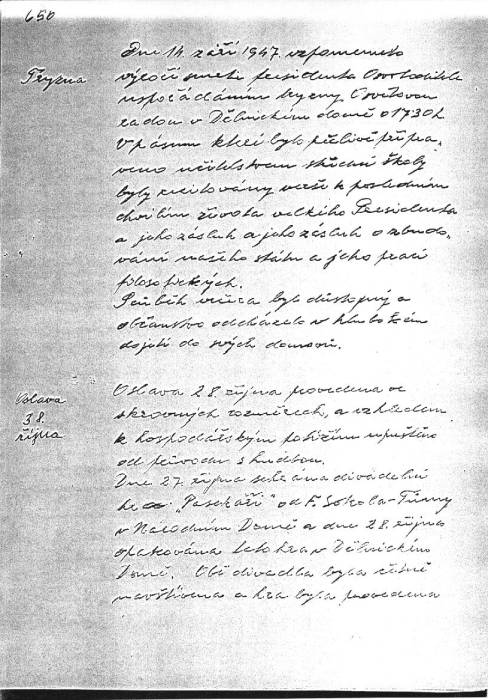 650
Tryzna
Dne 14. září 1947 vzpomenuto
výročí smrti presidenta Osvoboditele
uspořádáním tryzny Osvětovou
radou v Dělnickém domě o 1730 h.
V pásmu které bylo pečlivě připra-
veno učitelstvem střední školy
byly recitovány verše k posledním
chvilím života velkého Presidenta
a jeho zásluh a jeho zásluh o zbudo-
vání našeho státu a jeho prací
filosofických.
Průběh večera byl důstojný a
občanstvo odcházelo v hlubokém
dojetí do svých domovů.
Oslava
28.
října
Oslava 28. října provedena ve
skrovných rozměrech, a vzhledem
k hospodářským potížím upuštěno
od průvodu s hudbou.
Dne 27. října sehrána divadelní
hra "Pasekáři" od F. Sokola-Tůmy
v Národním Domě a dne 28. října
opakována tato hra v Dělnickém
Domě. Obě divadla byla četně
navštívena a hra byla provedena